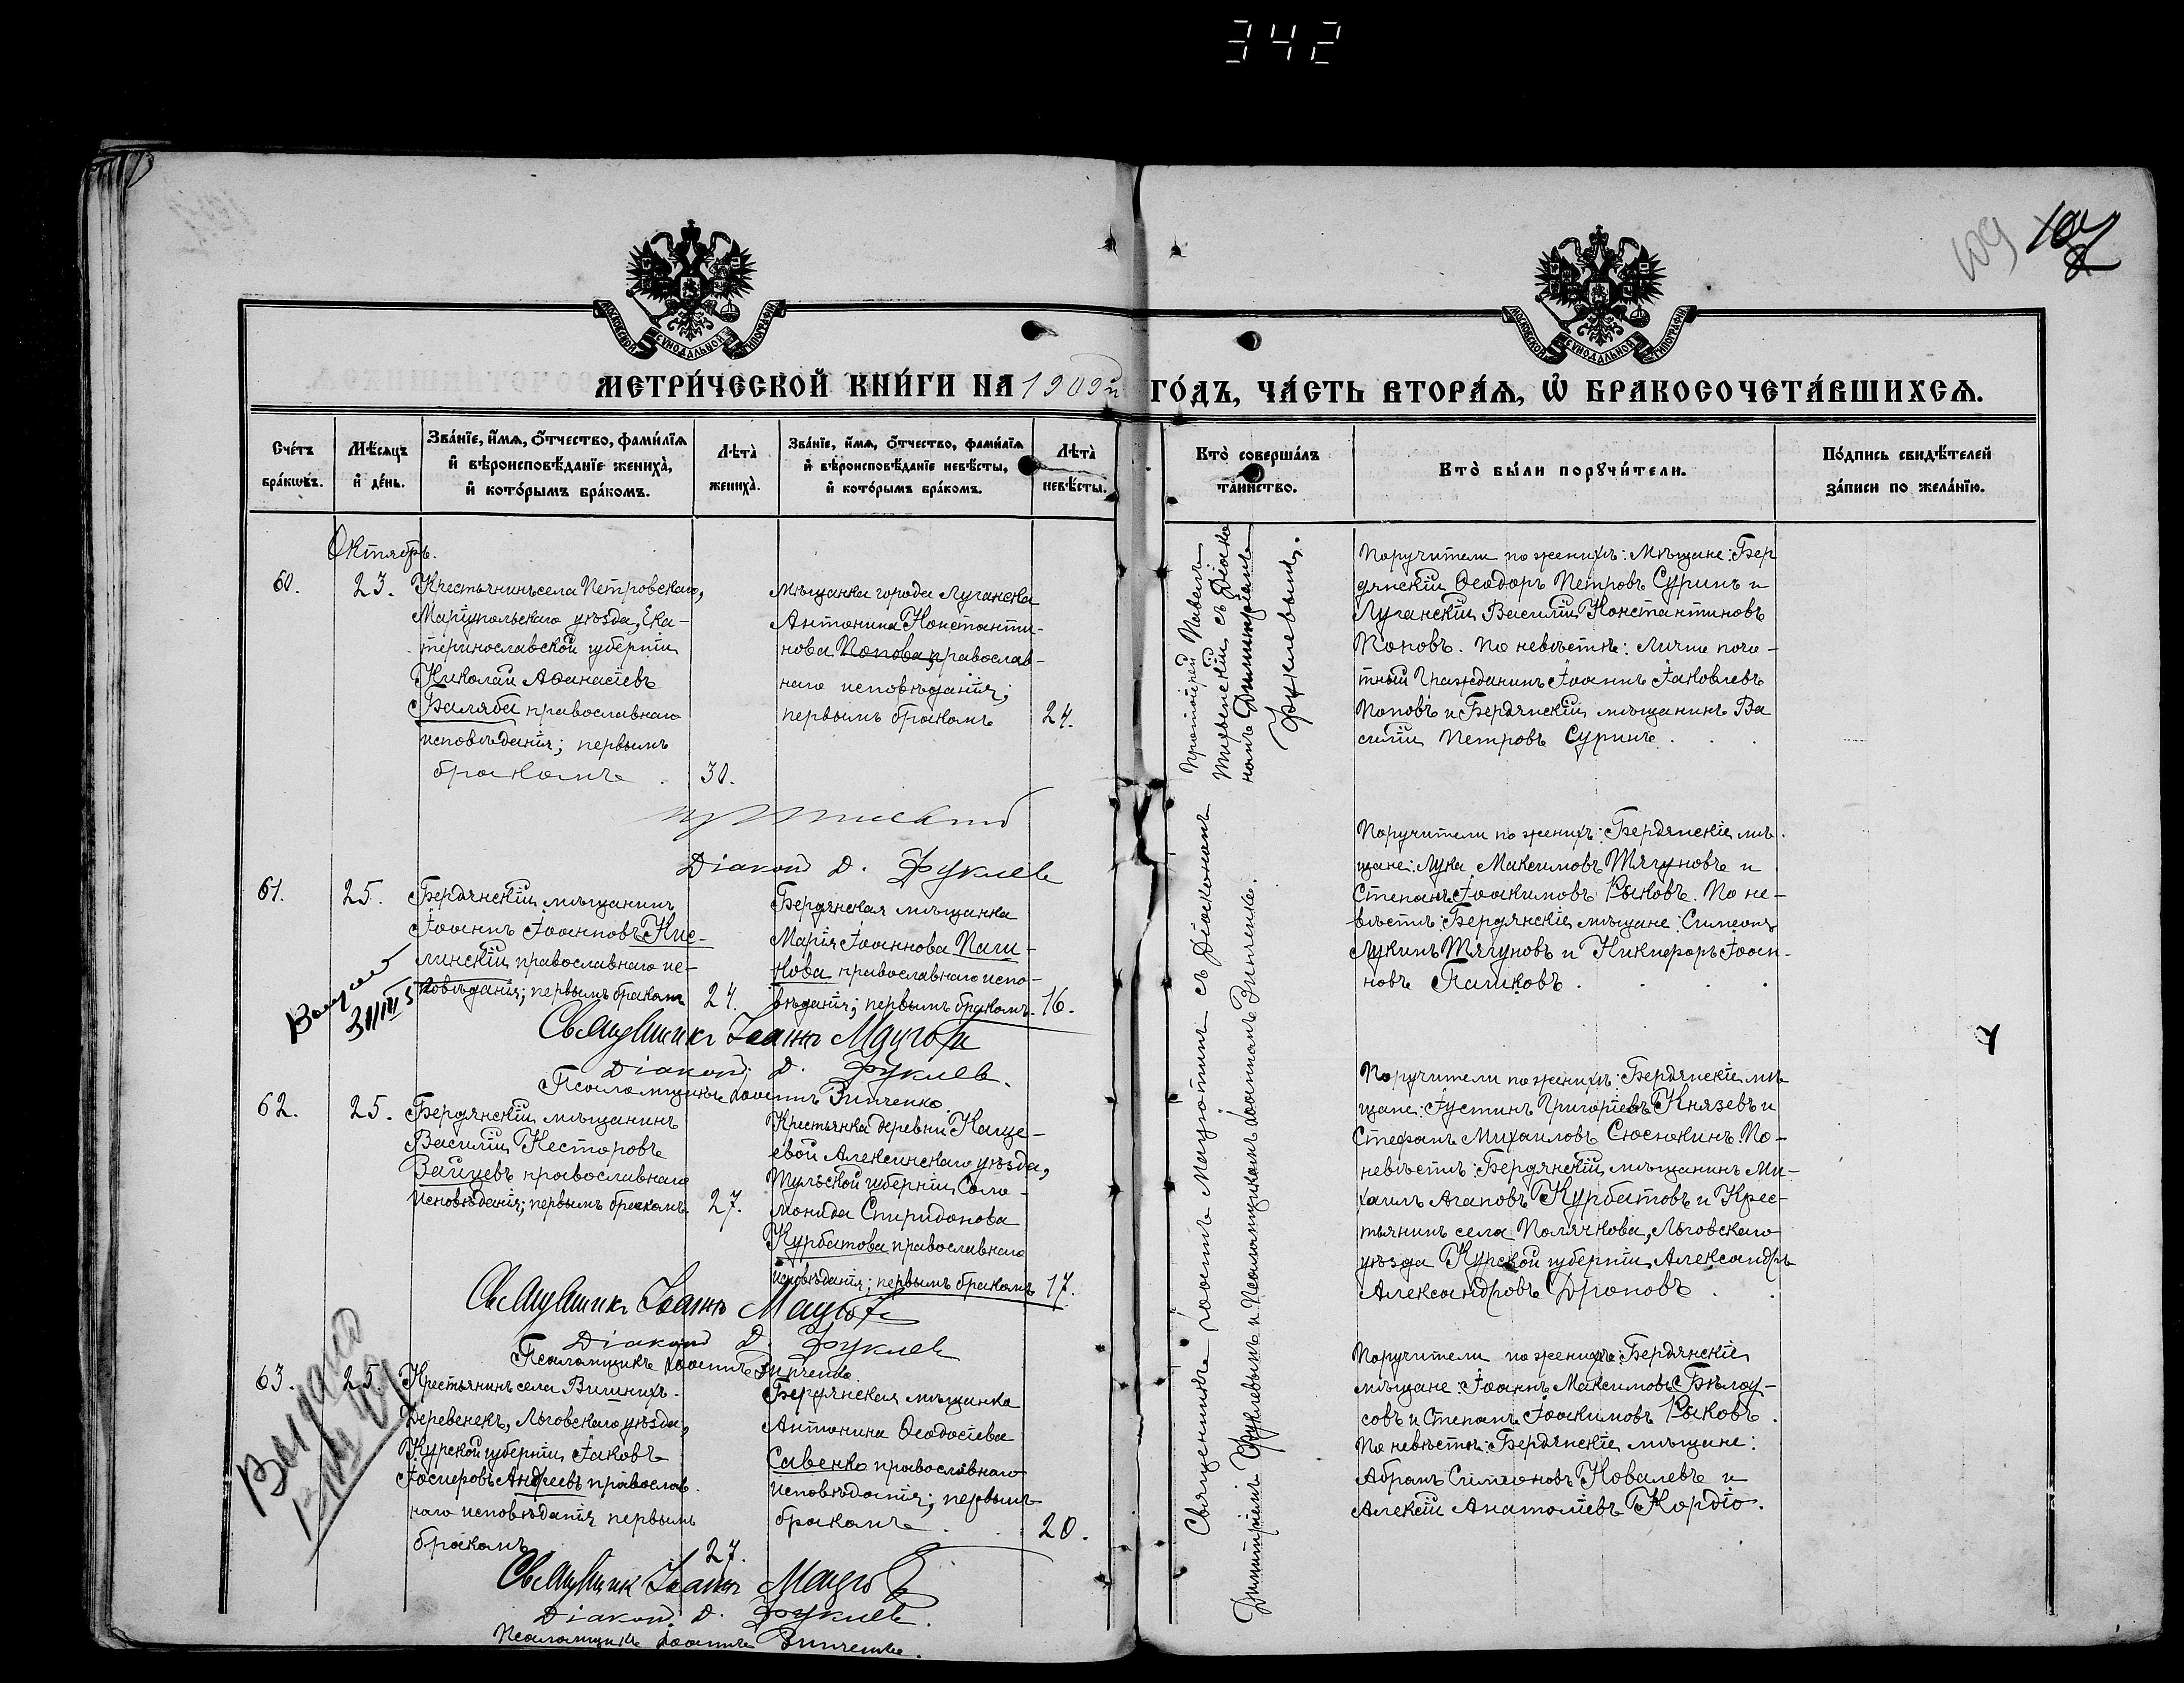 342
109
МОСКОВСКОЙ СѴНОДАЛЬНОЙ ТИПОГРАФІИ
МОСКОВСКОЙ СѴНОДАЛЬНОЙ ТИПОГРАФІИ
МЕТРИ́ЧЕСКОЙ КНИ́ГИ НА 1909й ГО́ДЪ, ЧА́СТЬ ВТОРА́Ѧ, Ѡ҆ БРАКОСОЧЕТА́ВШИХСѦ.
Сче́тъ
бра́кѡвъ.
Мѣ́сѧцъ
и҆ де́нь.
Зва́нїе, и҆́мѧ, ѻ҆́тчество, фами́лїѧ
и҆ вѣроисповѣ́данїе жениха̀,
и҆ кото́рымъ бра́комъ.
Лѣта̀
жениха̀.
Зва́нїе, и҆́мѧ, ѻ҆́тчество, фами́лїѧ
и҆ вѣроисповѣ́данїе невѣ́сты,
и҆ кото́рымъ бра́комъ.
Лѣта̀
невѣ́сты.
Кто̀ соверша́лъ
та́инство.
Кто̀ бы́ли порꙋчи́тели.
По́дпись свидѣ́телей
за́писи по жела́нїю.
Октябрь.
60.
23.
Крестьянинъ села Петровскаго,
Маріупольскаго уѣзда, Ека-
теринославской губерніи
Николай Аѳанасіевъ
Баляба православнаго
исповѣданія; первымъ
бракомъ
30.
Мѣщанка города Луганска
Антонина Константи-
нова Попова, православ-
наго исповѣданія;
первымъ бракомъ
24.
Протоіерей Павелъ
Тихвенскій съ Діако-
номъ Димитріемъ
Фуклевымъ.
Поручители по женихѣ: Мѣщане: Бер
дянскій Ѳеодоръ Петровъ Суринъ и
Луганскій Василій Константиновъ
Поповъ. По невѣстѣ: Лично поче-
тный Гражданинъ Іоаннъ Іаковлевъ
Поповъ и Бердянскій мѣщанинъ Ва
силій Петровъ Суринъ.
Діаконъ Д. Фуклевъ
61.
25.
Бердянскій мѣщанинъ
Іоаннъ Іоанновъ Кис-
линскій православнаго ис-
повѣданія; первымъ бракомъ
24.
Бердянская мѣщанка
Марія Іоаннова Паш-
кова православнаго испо-
вѣданія; первымъ бракомъ.
16.
Поручители по женихѣ: Бердянскіе мѣ-
щане: Лука Максимовъ Тягуновъ и
Степанъ Іоакимовъ Рыковъ. По не-
вѣстѣ: Бердянскіе мѣщане: Симеонъ
Лукинъ Тягуновъ и Никифоръ Іоан-
новъ Пашковъ.
Священникъ Іоаннъ
Діаконъ Д. Фуклевъ.
Псаломщикъ Іоаннъ Зинченко.
62.
25.
Бердянскій мѣщанинъ
Василій Несторовъ
Зайцевъ православнаго
исповѣданія; первымъ бракомъ.
27.
Крестьянка деревни Каще-
евой Алексинскаго уѣзда,
Тульской губерніи Соло-
монида Спиридонова
Курбатова православнаго
исповѣданія; первымъ бракомъ
17.
Поручители по женихѣ: Бердянскіе мѣ
щане: Іустинъ Григоріевъ Князевъ и
Стефанъ Михаиловъ Сюсюкинъ. По-
невѣстѣ: Бердянскій мѣщанинъ Ми-
хаилъ Агаповъ Курбатовъ и Крес-
тьянинъ села Полячкова, Льговскаго
уѣзда Курской губерніи, Александръ
Александровъ Дроновъ
Священникъ Іоаннъ
Діаконъ Д. Фуклевъ
Псаломщикъ Іоаннъ Зинченко.
63.
25.
Крестьянинъ села Вишнихъ-
Деревенекъ, Льговскаго уѣзда,
Курской губерніи Іаковъ
Іосифовъ Андреевъ православ-
наго исповѣданія первымъ
бракомъ
27.
Бердянская мѣщанка
Антонина Ѳеодосіева
Савенко православнаго
исповѣданія; первымъ
бракомъ
20.
Поручители по женихѣ: Бердянскіе
мѣщане: Іоаннъ Максимовъ Бѣлоу-
совъ и Степанъ Іоакимовъ Рыковъ.
По невѣстѣ: Бердянскіе мѣщане:
Абрамъ Симеоновъ Ковалевъ и
Алексій Анатоліевъ Кордіо.
Священникъ Іоаннъ
Діаконъ Д. Фуклевъ.
Псаломщикъ Іоаннъ Зинченко.
Священникъ Іоаннъ съ Діакономъ
Димитріемъ Фуклевымъ и Псаломщикомъ Іоанномъ Зинченко.
Выдана